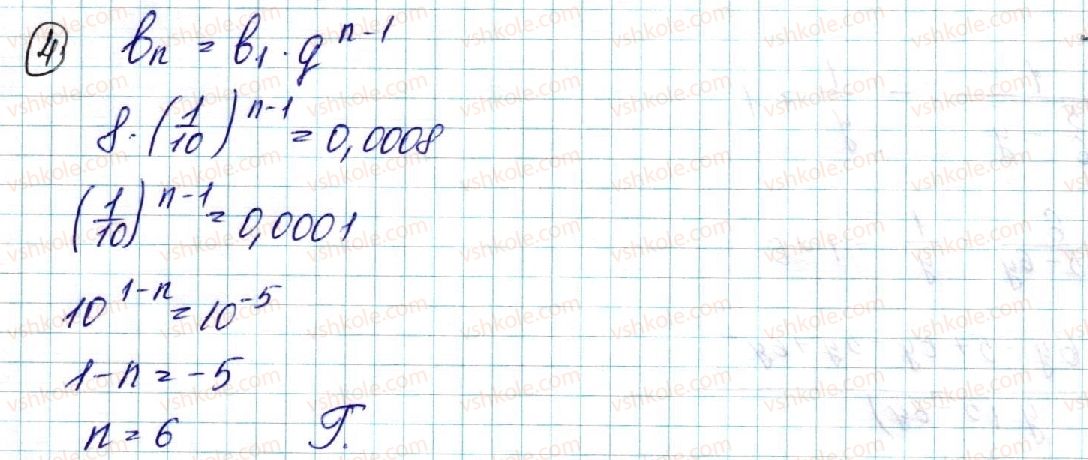 4 bₙ = b₁ · qⁿ⁻¹
8 · (1/10)ⁿ⁻¹ = 0,0008
(1/10)ⁿ⁻¹ = 0,0001
10¹⁻ⁿ = 10⁻⁵
1-n = -5
n = 6 Г.